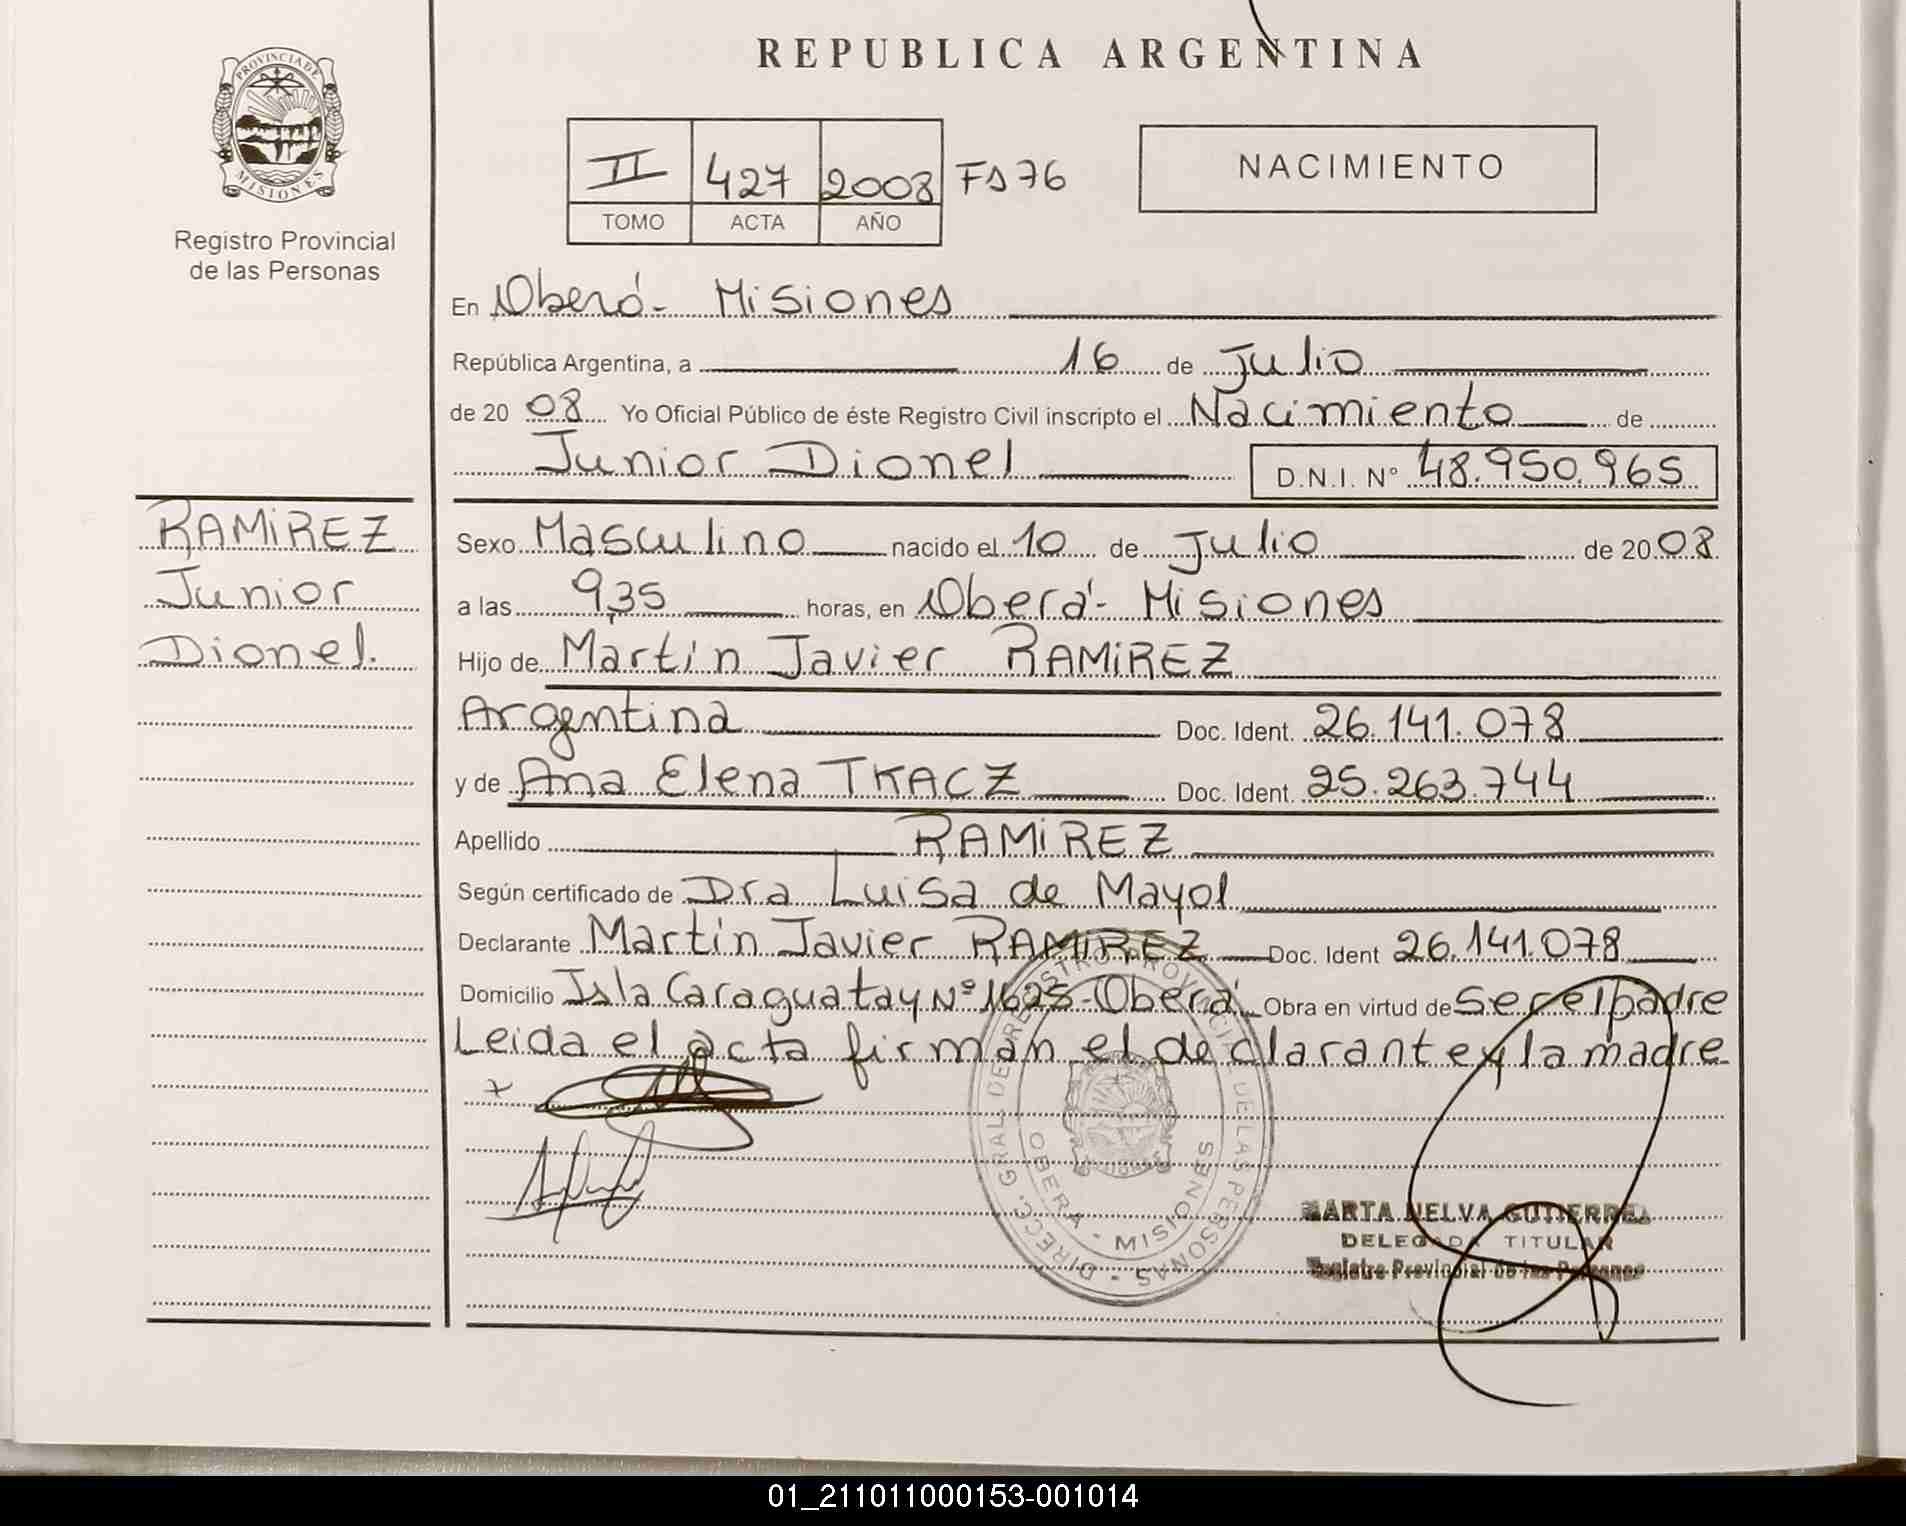 REPUBLICA ARGENTINA
PROVINCIA DE MISIONES
Registro Provincial
de las Personas
II 427 2008 Fs 76
TOMO ACTA AÑO
NACIMIENTO
En Oberá- Misiones
República Argentina, a 16 de Julio
de 20 08 Yo Oficial Público de éste Registro Civil inscripto el Nacimiento de
Junior Dionel D.N.I. Nº 48.950.965
RAMIREZ
Junior
Dionel.
Sexo Masculino nacido el 10 de Julio de 20 08
a las 9,35 horas, en Oberá- Misiones
Hijo de Martín Javier RAMIREZ
Argentina Doc. Ident. 26.141.078
y de Ana Elena TKACZ Doc. Ident. 25.263.744
Apellido RAMIREZ
Según certificado de Dra Luisa de Mayol
Declarante Martín Javier RAMIREZ Doc. Ident 26.141.078
Domicilio Isla Caraguatay Nº 1625-Oberá Obra en virtud de Ser el padre
Leida el acta firman el declarante y la madre
DIRECC. GRAL. DE REGISTRO PROVINCIAL DE LAS PERSONAS
OBERA - MISIONES
MARTA NELVA GUTIERREZ
DELEGADA TITULAR
Registro Provincial de las Personas
01_211011000153-001014